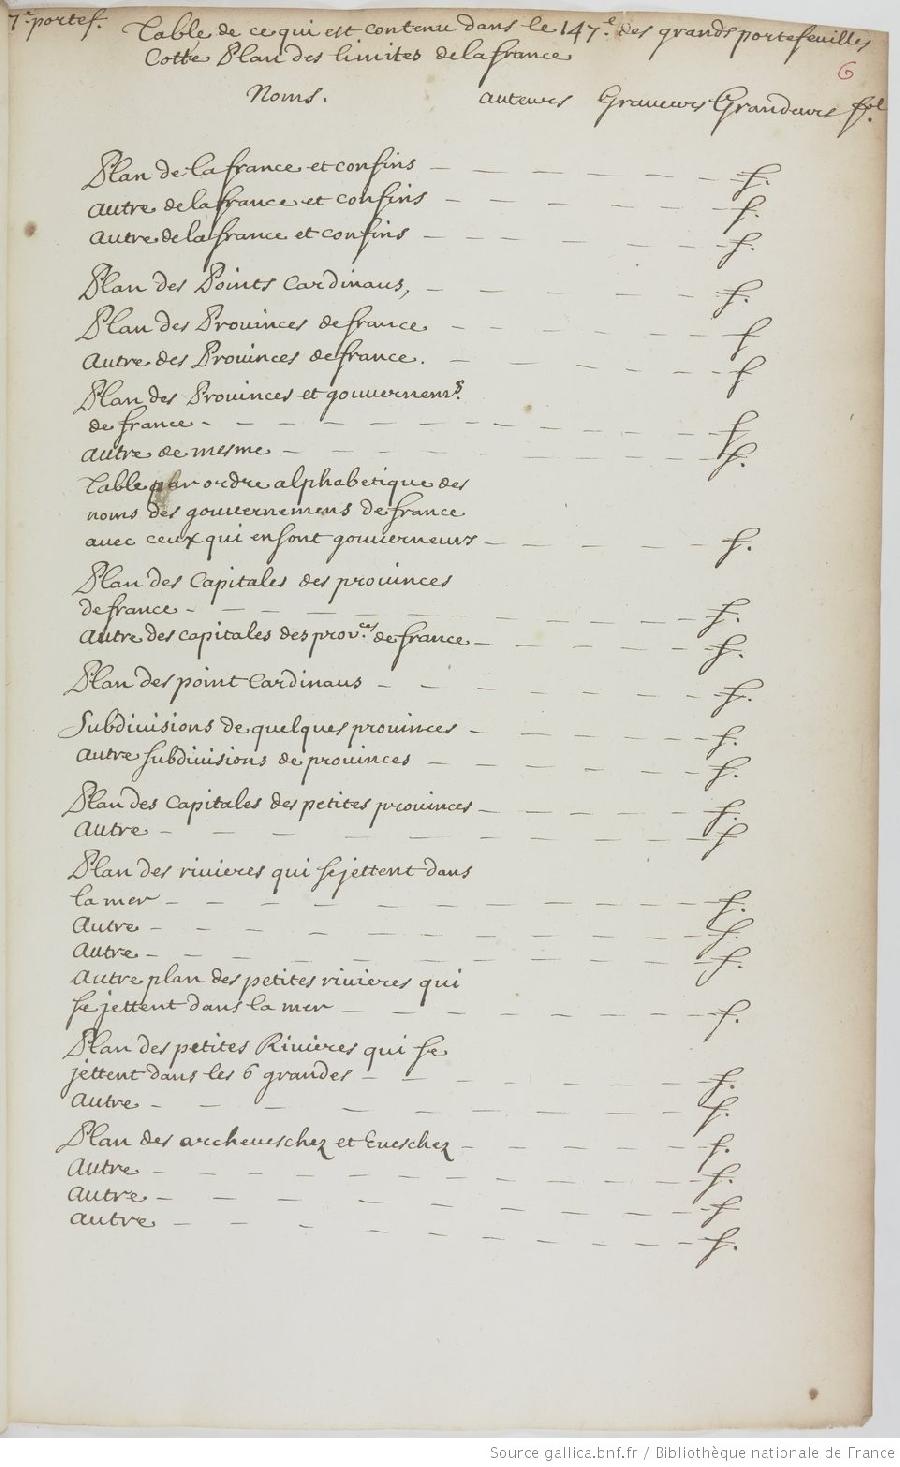 7.e portef. Table de ce qui est contenu dans le 147.e des grands portefeuilles
Cotte Plan des limites de la france
6
Noms. auteurs Graueurs Grandeurs fol.
Plan de la france et confins — — — — — — — f.
autre de la france et confins — — — — — — — f.
autre de la france et confins — — — — — — — f.
Plan des Points Cardinaus, — — — — — — — f.
Plan des Prouinces de france — — — — — — f
autre des Prouinces de france. — — — — — — f
Plan des Prouinces et gouuernem.s
de france - — — — — — — — — — f
autre de mesme — — — — — — — — — f.
Table par ordre alphabetique des
noms des gouuernemens de france
auec ceux qui en sont gouuerneurs — — — — — f.
Plan des Capitales des prouinces
de france - — — — — — — — — — f.
autre des capitales des prov.ces de france — — — — — f.
Plan des point Cardinaus — — — — — — — f.
Subdiuisions de quelques prouinces — — — — — f.
autre subdiuisions de prouinces — — — — — — f.
Plan des Capitales des petites prouinces — — — — — f.
autre — — — — — — — — — — f
Plan des riuieres qui se jettent dans
la mer — — — — — — — — — — f.
autre — — — — — — — — — — f.
autre — — — — — — — — — — f.
autre plan des petites riuieres qui
se jettent dans la mer — — — — — — — f.
Plan des petites Riuieres qui se
jettent dans les 6 grandes — — — — — — — f.
autre — — — — — — — — — — f.
Plan des archeueschez et Eueschez — — — — — — f.
autre — — — — — — — — — — f.
autre — — — — — — — — — — f
autre — — — — — — — — — — f.
Source gallica.bnf.fr / Bibliothèque nationale de France